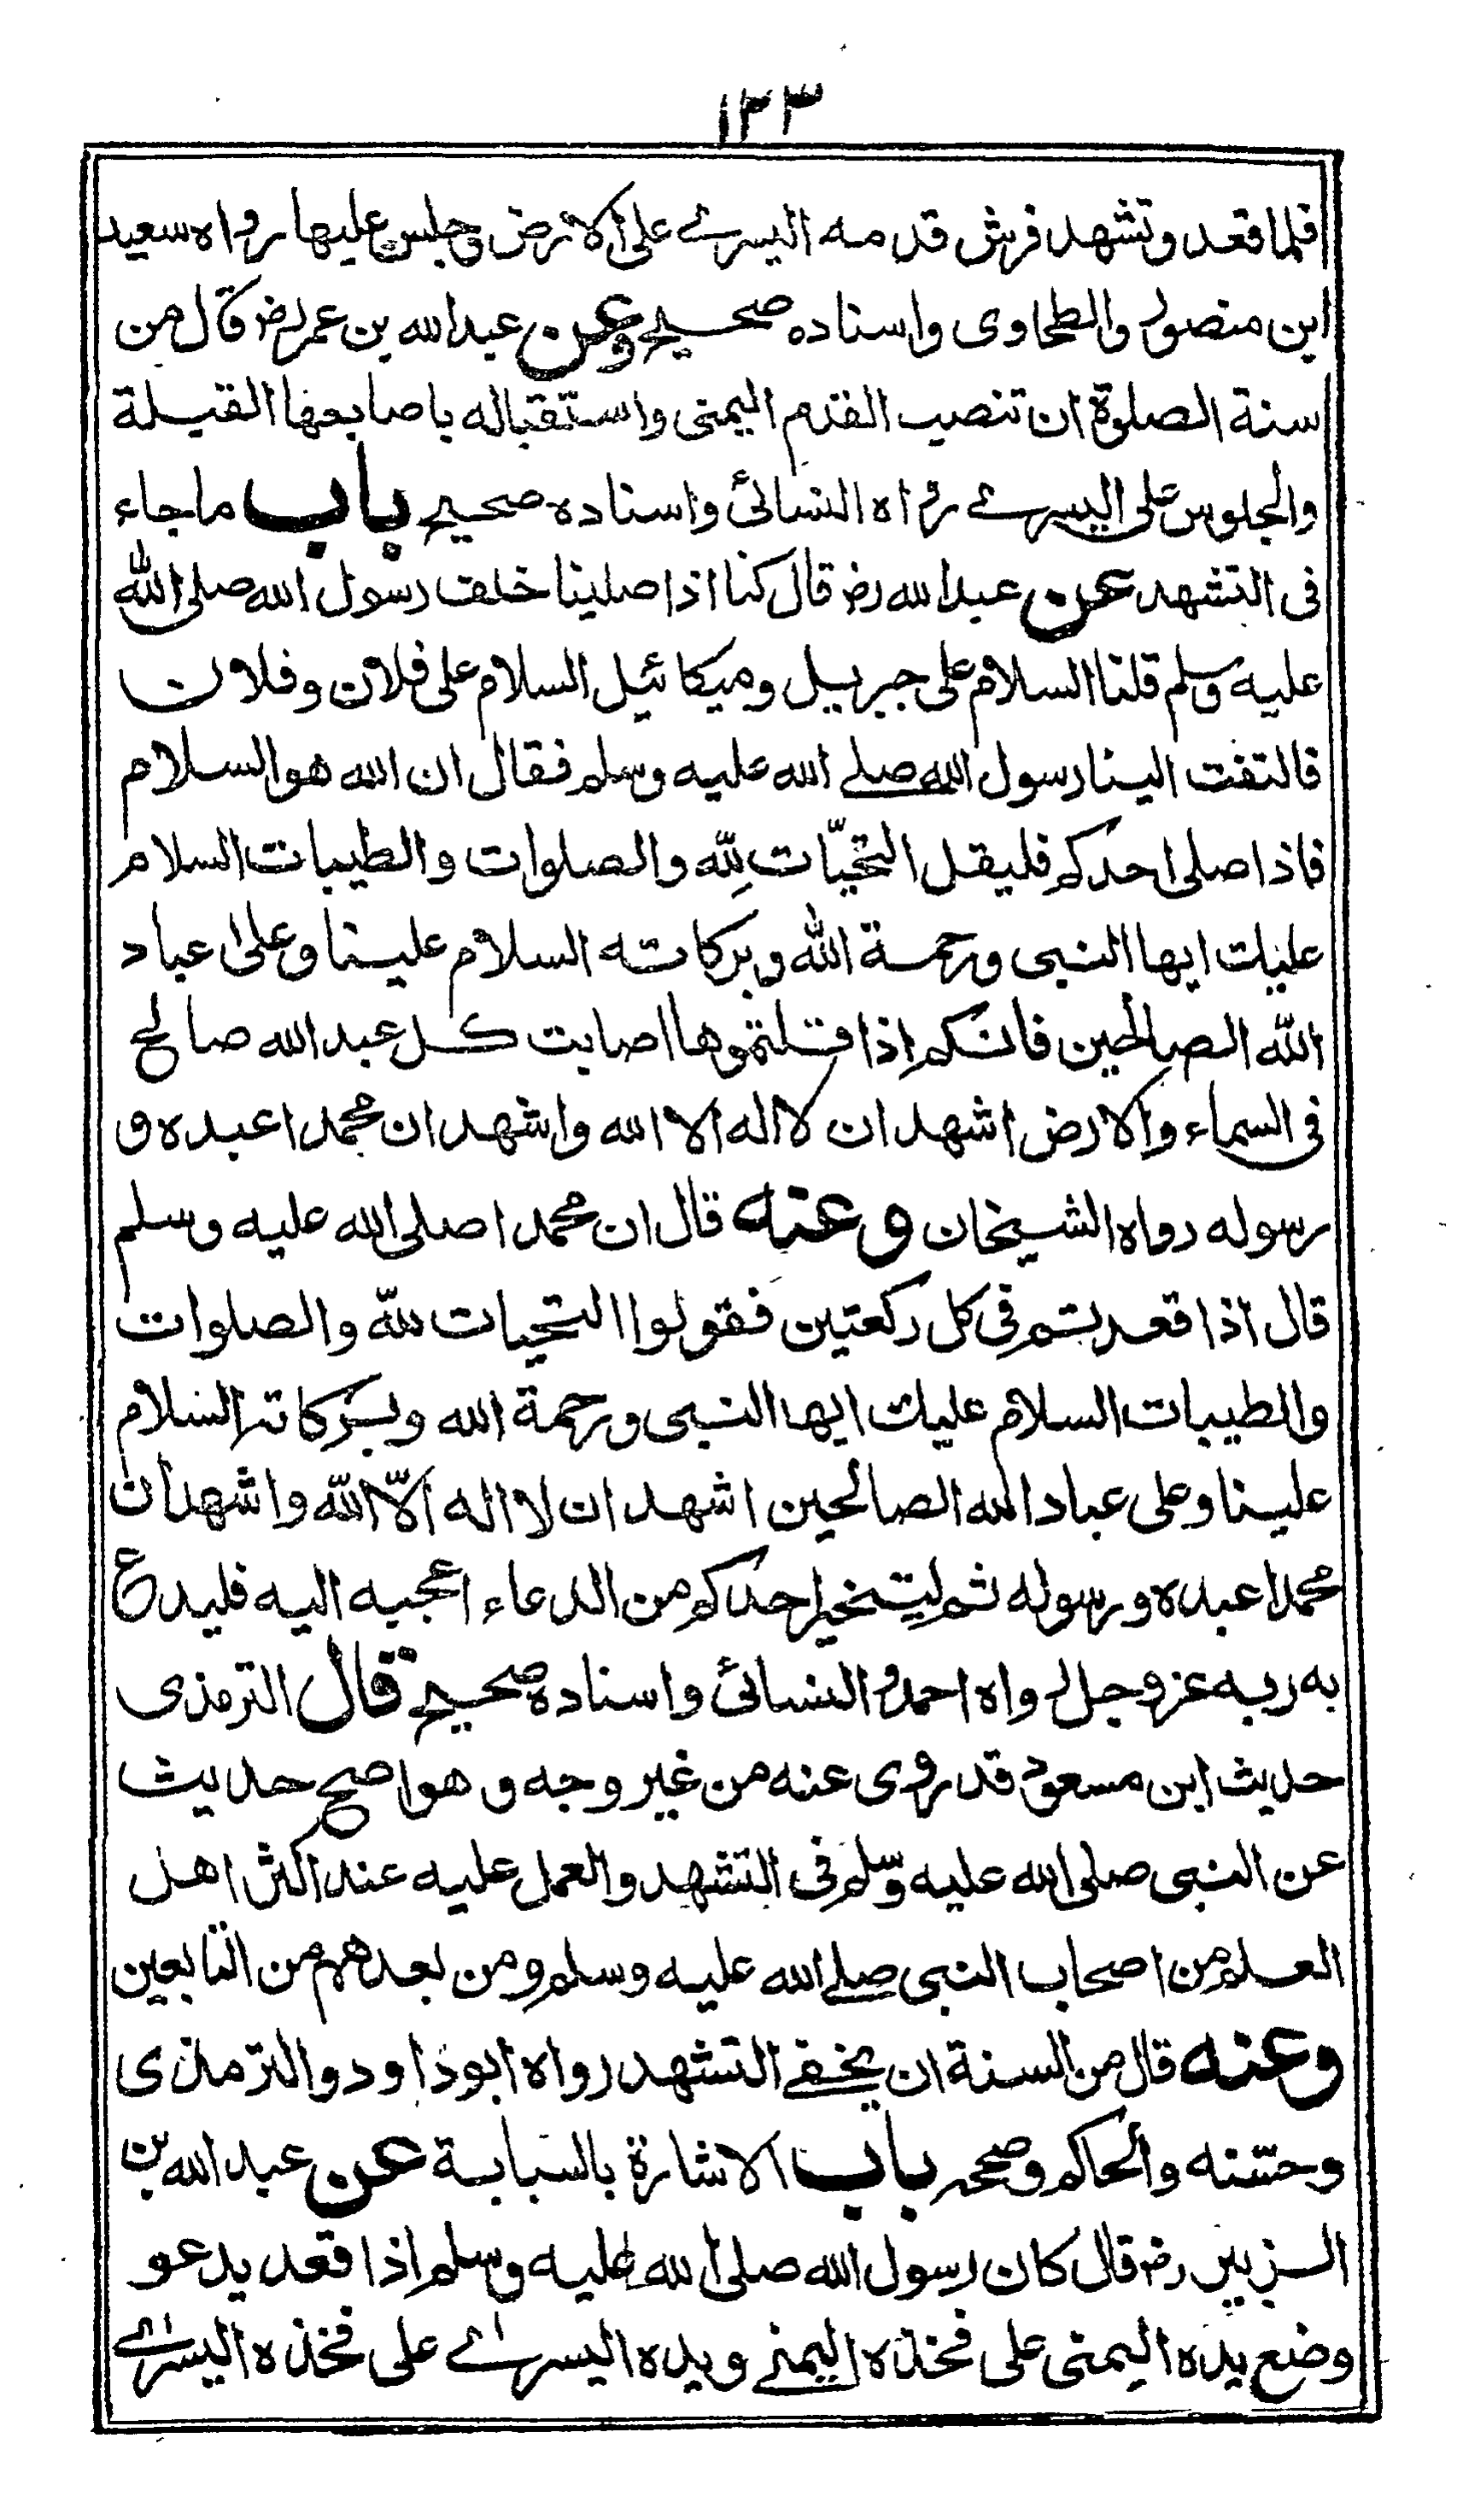 ١٣٣
فلما قعد وتشهد فرش قدمه اليسرے على الارض وجلس عليها رواه سعيد
ابن منصور والطحاوى واسناده صحيح وعن عبدالله بن عمر رض قال من
سنة الصلوة ان تنصب القدم اليمنى واستقباله باصابعها القبلة
والجلوس على اليسرے رواه النسائى واسناده صحيح باب ماجاء
فى التشهد عن عبدالله رض قال كنا اذا صلينا خلف رسول الله صلى الله
عليه وسلم قلنا السلام على جبريل وميكائيل السلام على فلان وفلان
فالتفت الينا رسول الله صلے الله عليه وسلم فقال ان الله هو السلام
فاذا صلى احدكم فليقل التحيّات لِلّه والصلوات والطيبات السلام
عليك ايها النبى ورحمة الله وبركاته السلام علينا وعلى عباد
الله الصالحين فانكم اذا قلتموها اصابت كل عبد الله صالح
فى السماء والارض اشهد ان لا اله الا الله واشهد ان محمدا عبده و
رسوله رواه الشيخان وعنه قال ان محمدا صلى الله عليه وسلم
قال اذا قعدتم فى كل ركعتين فقولوا التحيات للّه والصلوات
والطيبات السلام عليك ايها النبى ورحمة الله وبركاته السلام
علينا وعلى عباد الله الصالحين اشهد ان لا اله الّا اللّه واشهد ان
محمدا عبده ورسوله ثم ليتخير احدكم من الدعاء اعجبه اليه فليدع
به ربه عز وجل رواه احمد والنسائى واسناده صحيح قال الترمذى
حديث ابن مسعود قد روى عنه من غير وجه وهو اصح حديث
عن النبى صلى الله عليه وسلم فى التشهد والعمل عليه عند اكثر اهل
العلم من اصحاب النبى صلے الله عليه وسلم ومن بعدهم من التابعين
وعنه قال من السنة ان يخفے التشهد رواه ابوداود والترمذى
وحسّنه والحاكم وصححه باب الاشارة بالسبابة عن عبد الله بن
الزبير رض قال كان رسول الله صلى الله عليه وسلم اذا قعد يدعو
وضع يده اليمنى على فخذه اليمنے ويده اليسرےٰ على فخذه اليسرےٰ